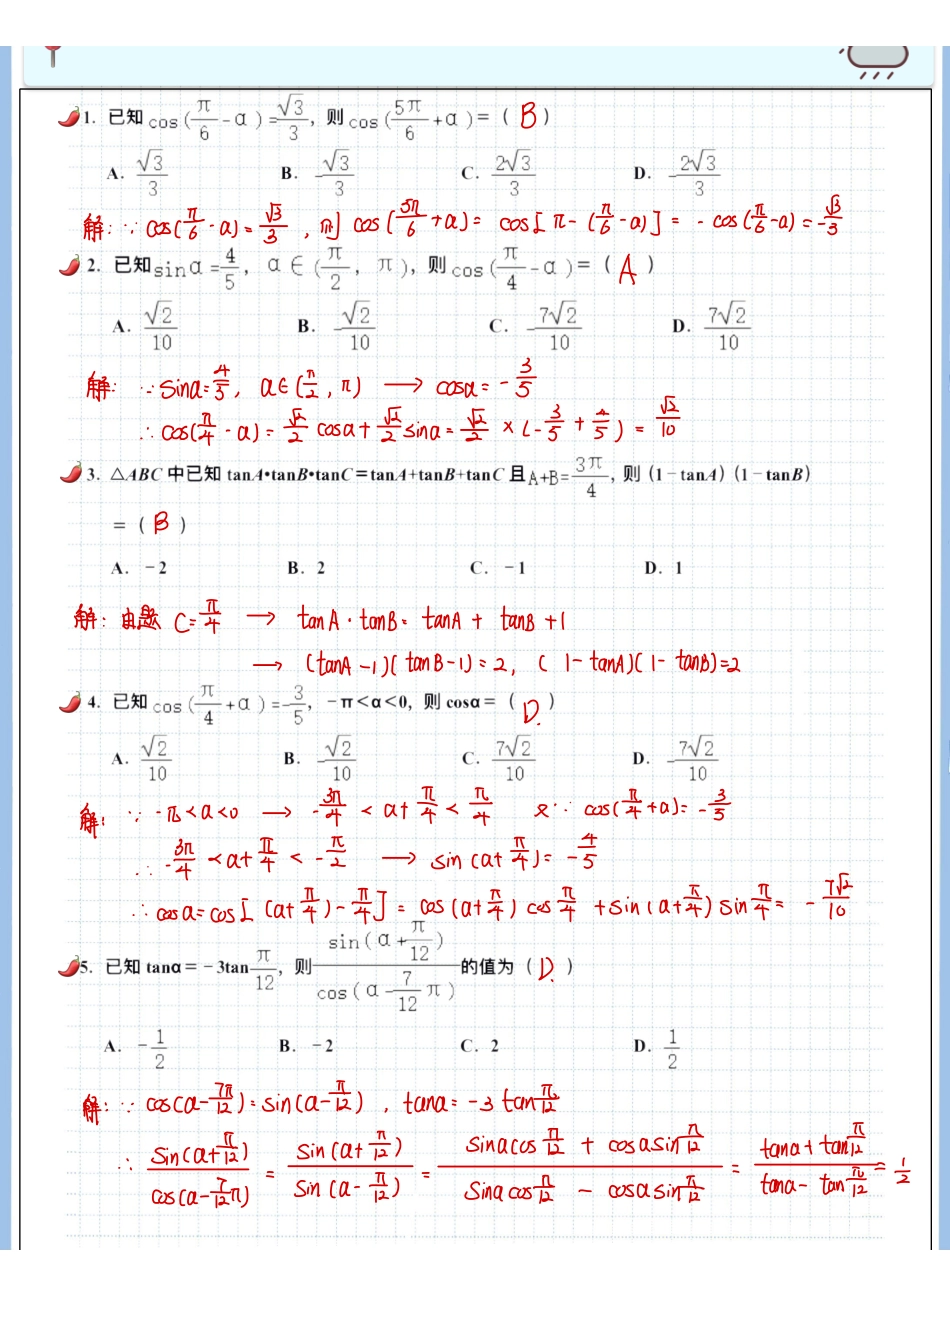 1. 已知cos(π/6-α)=√3/3，则cos(5π/6+α)=（ B ）
A. √3/3 B. -√3/3 C. 2√3/3 D. -2√3/3
解: ∵ cos(π/6-α)=√3/3 , 则 cos(5π/6+α)= cos[π-(π/6-α)] = -cos(π/6-α)=-√3/3
2. 已知sinα=4/5，α∈(π/2，π)，则cos(π/4-α)=（ A ）
A. √2/10 B. -√2/10 C. -7√2/10 D. 7√2/10
解: ∵ sinα=4/5, α∈(π/2, π) → cosα=-3/5
∴ cos(π/4-α)=√2/2 cosα+√2/2 sinα=√2/2 ×(-3/5+4/5)=√2/10
3. △ABC 中已知 tanA•tanB•tanC=tanA+tanB+tanC 且A+B=3π/4，则（1-tanA）（1-tanB）
=（ B ）
A. -2 B. 2 C. -1 D. 1
解: 由题 C=π/4 → tanA·tanB= tanA+ tanB+1
→ (tanA-1)(tanB-1)=2, (1-tanA)(1-tanB)=2
4. 已知cos(π/4+α)=-3/5，-π<α<0，则 cosα=（ D. ）
A. √2/10 B. -√2/10 C. 7√2/10 D. -7√2/10
解: ∵ -π<α<0 → -3π/4<α+π/4<π/4 又∵ cos(π/4+α)=-3/5
∴ -3π/4<α+π/4<-π/2 → sin(α+π/4)=-4/5
∴ cosα=cos[(α+π/4)-π/4] = cos(α+π/4)cosπ/4+sin(α+π/4)sinπ/4=-7√2/10
5. 已知 tanα=-3tanπ/12，则sin(α+π/12)/cos(α-7/12π)的值为（ D. ）
A. -1/2 B. -2 C. 2 D. 1/2
解: ∵ cos(α-7π/12)=sin(α-π/12), tanα=-3tanπ/12
∴ sin(α+π/12)/cos(α-7/12π) = sin(α+π/12)/sin(α-π/12) = sinαcosπ/12+cosαsinπ/12/sinαcosπ/12-cosαsinπ/12 = tanα+tanπ/12/tanα-tanπ/12=1/2